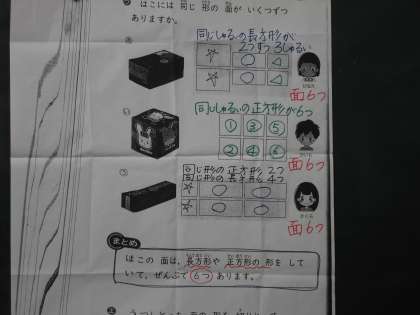 はこには 同じ 形の 面が いくつずつ
ありますか。
同じしゅるいの長方形が
2つずつ 3しゅるい
面6つ
同じしゅるいの正方形が6つ
① ③ ⑤
② ④ ⑥
面6つ
同じ形の 正方形 2つ
同じ形の 長方形 4つ
面6つ
まとめ
はこの 面は、長方形や 正方形の 形を して
いて、ぜんぶで 6つ あります。